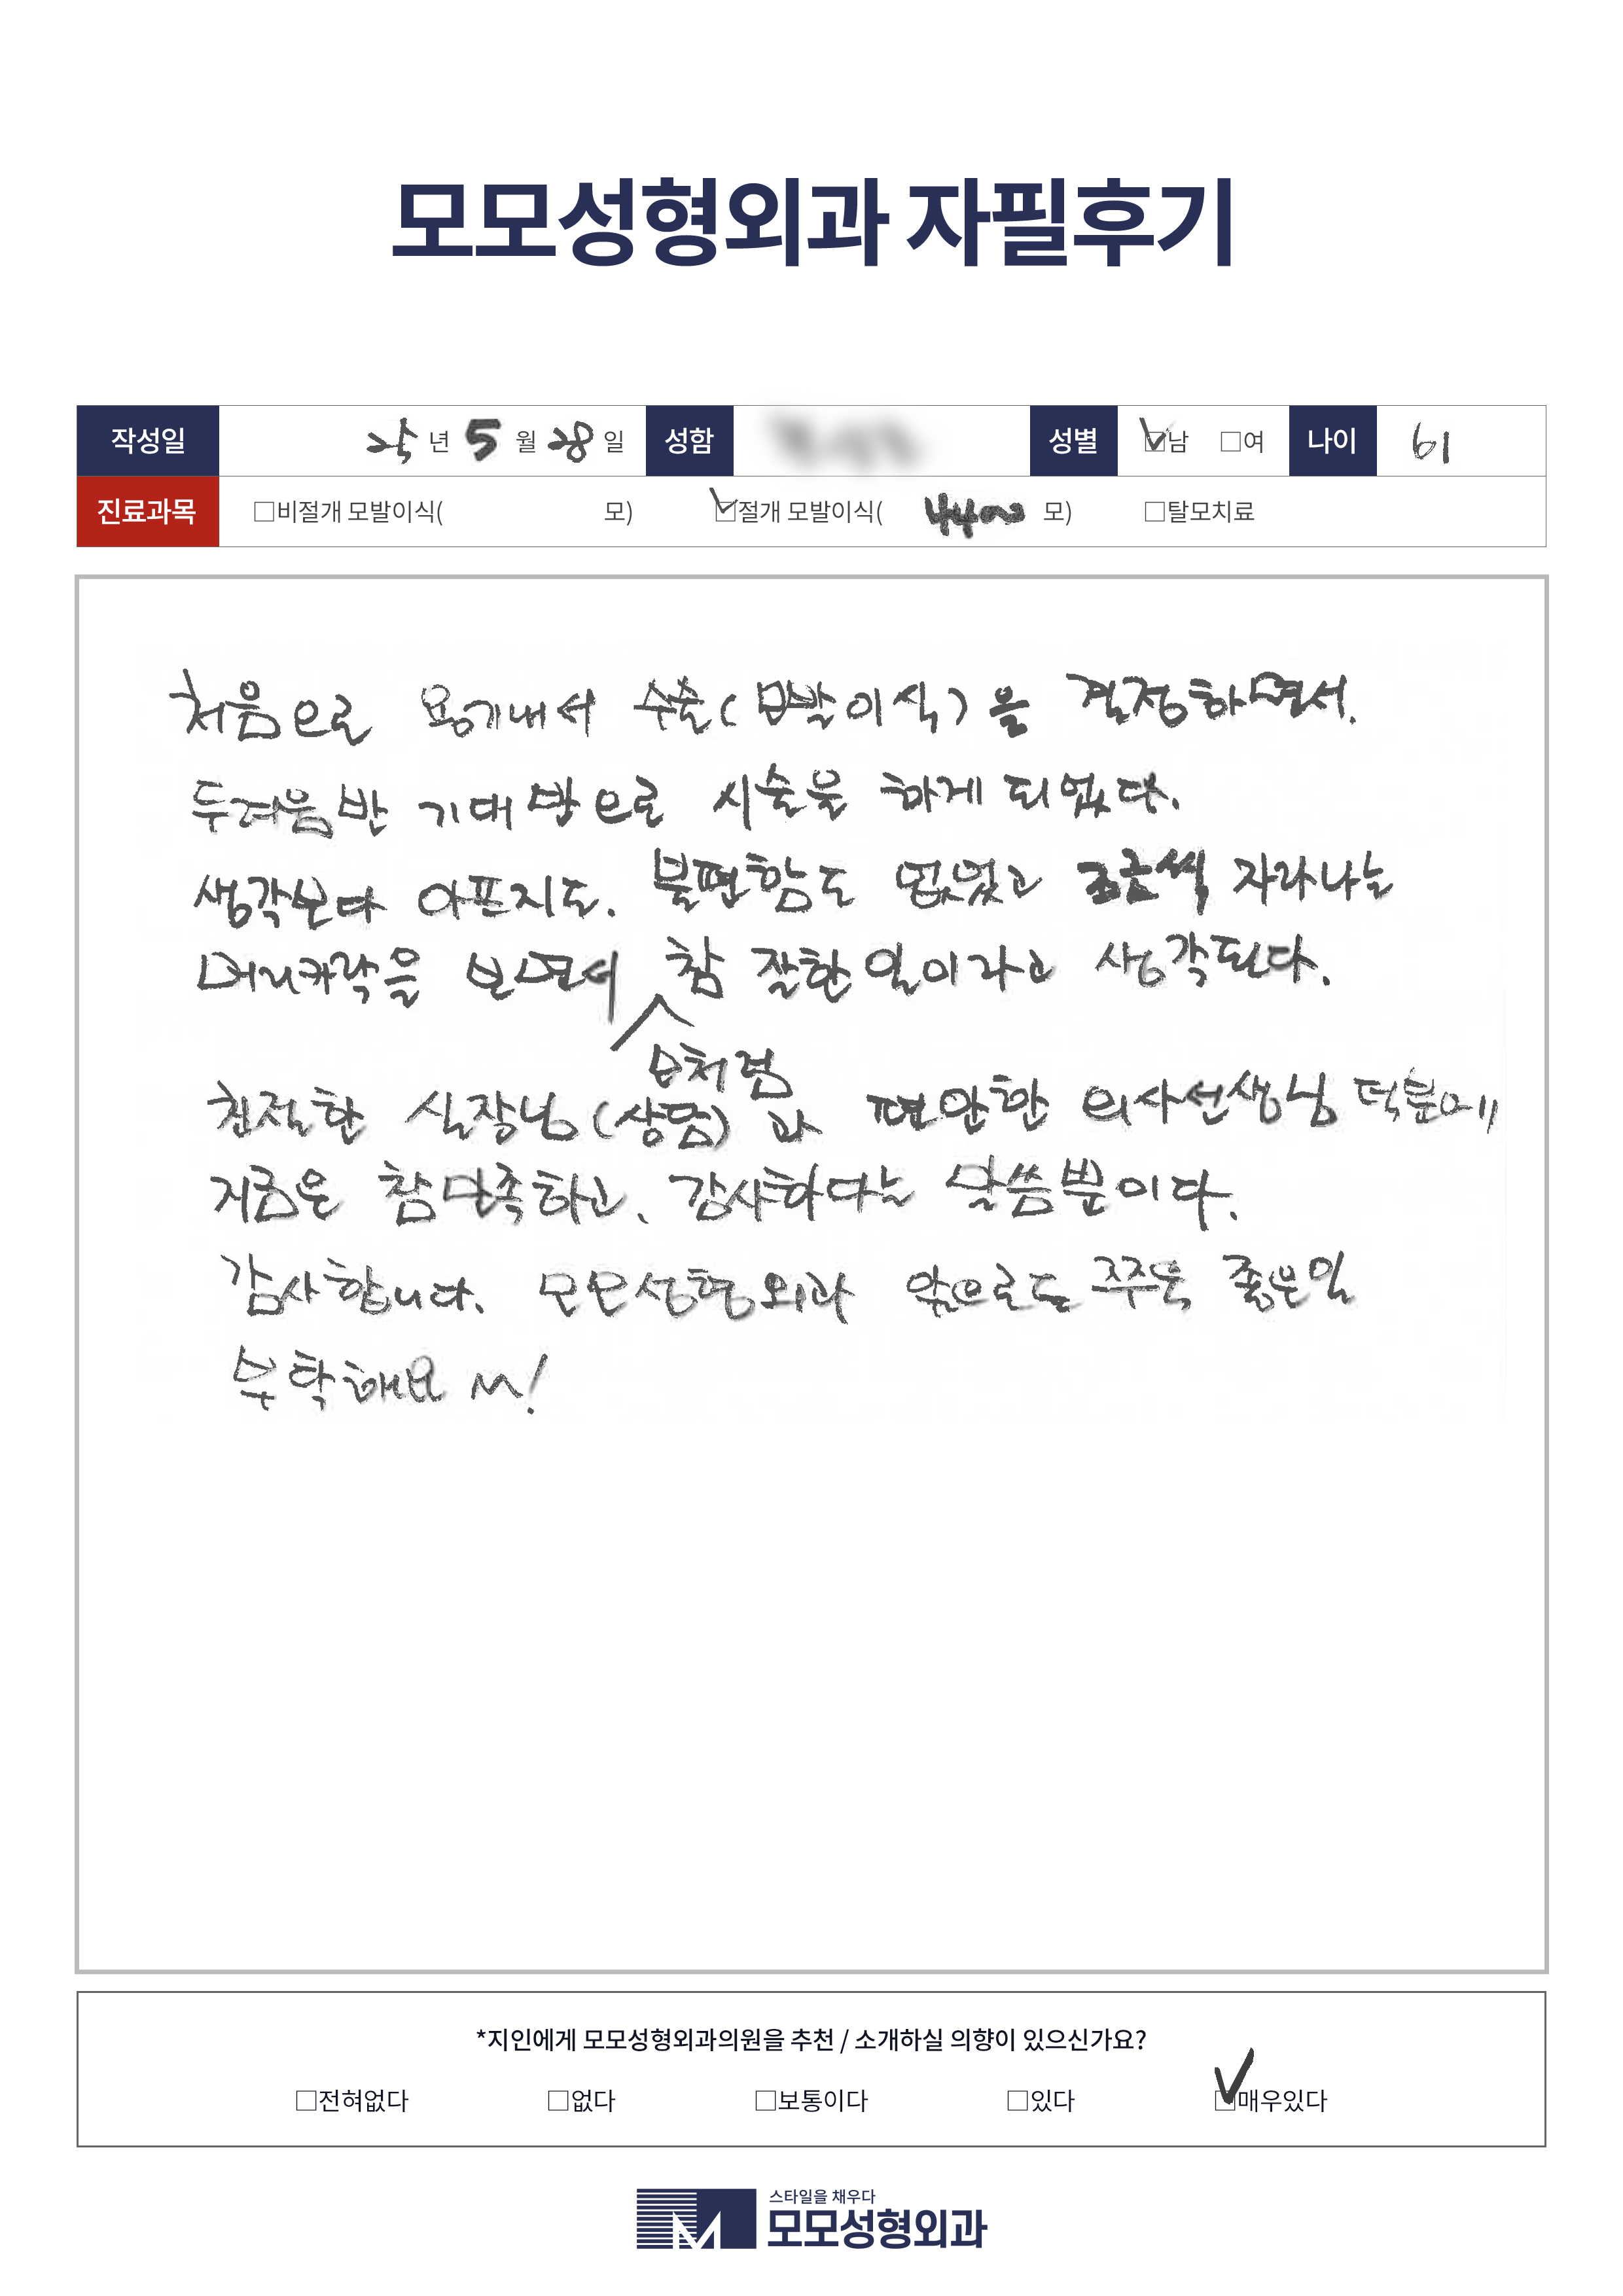 모모성형외과 자필후기
작성일 25년 5월 28일 성함 성별 ☑남 □여 나이 61
진료과목 □비절개 모발이식( 모) ☑절개 모발이식( 4400 모) □탈모치료
처음으로 용기내서 수술(모발이식)을 결정하면서.
두려움반 기대반으로 시술을 하게 되었다.
생각보다 아프지도. 불편함도 없었고 조금씩 자라나는
머리카락을 보면서 참 잘한일이라고 생각된다.
ㅁ처럼
친절한 실장님(상담)과 편안한 의사선생님 덕분에
지금은 참 만족하고, 감사하다는 말씀뿐이다.
감사합니다. 모모성형외과 앞으로도 쭈욱 좋은일
부탁해요 !
*지인에게 모모성형외과의원을 추천 / 소개하실 의향이 있으신가요?
□전혀없다 □없다 □보통이다 □있다 ☑매우있다
스타일을 채우다
모모성형외과